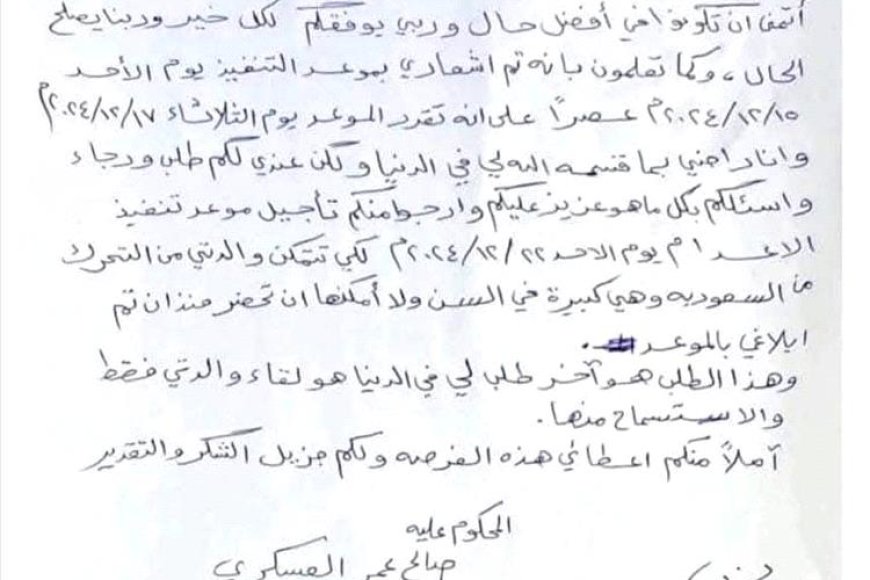 أتمنى ان تكونوا في أفضل حال وربي يوفقكم لكل خير وربنا يصلح
الحال ، وكما تعلمون بانه تم اشعاري بموعد التنفيذ يوم الأحد
٢٠٢٤/١٢/١٥م عصراً على انه تقرر الموعد يوم الثلاثاء ٢٠٢٤/١٢/١٧م
وانا راضي بما قسمه الله لي في الدنيا ولكن عندي لكم طلب ورجاء
واسئلكم بكل ما هو عزيز عليكم وارجوا منكم تأجيل موعد تنفيذ
الاعدام يوم الاحد ٢٠٢٤/١٢/٢٢م لكي تتمكن والدتي من التحرك
من السعوديه وهي كبيرة في السن ولا أمكنها ان تحضر منذ ان تم
ابلاغي بالموعد .
وهذا الطلب هو آخر طلب لي في الدنيا هو لقاء والدتي فقط
والاستسماح منها .
آملاً منكم اعطائي هذه الفرصه ولكم جزيل الشكر والتقدير
المحكوم عليه
صالح عمر العسكري